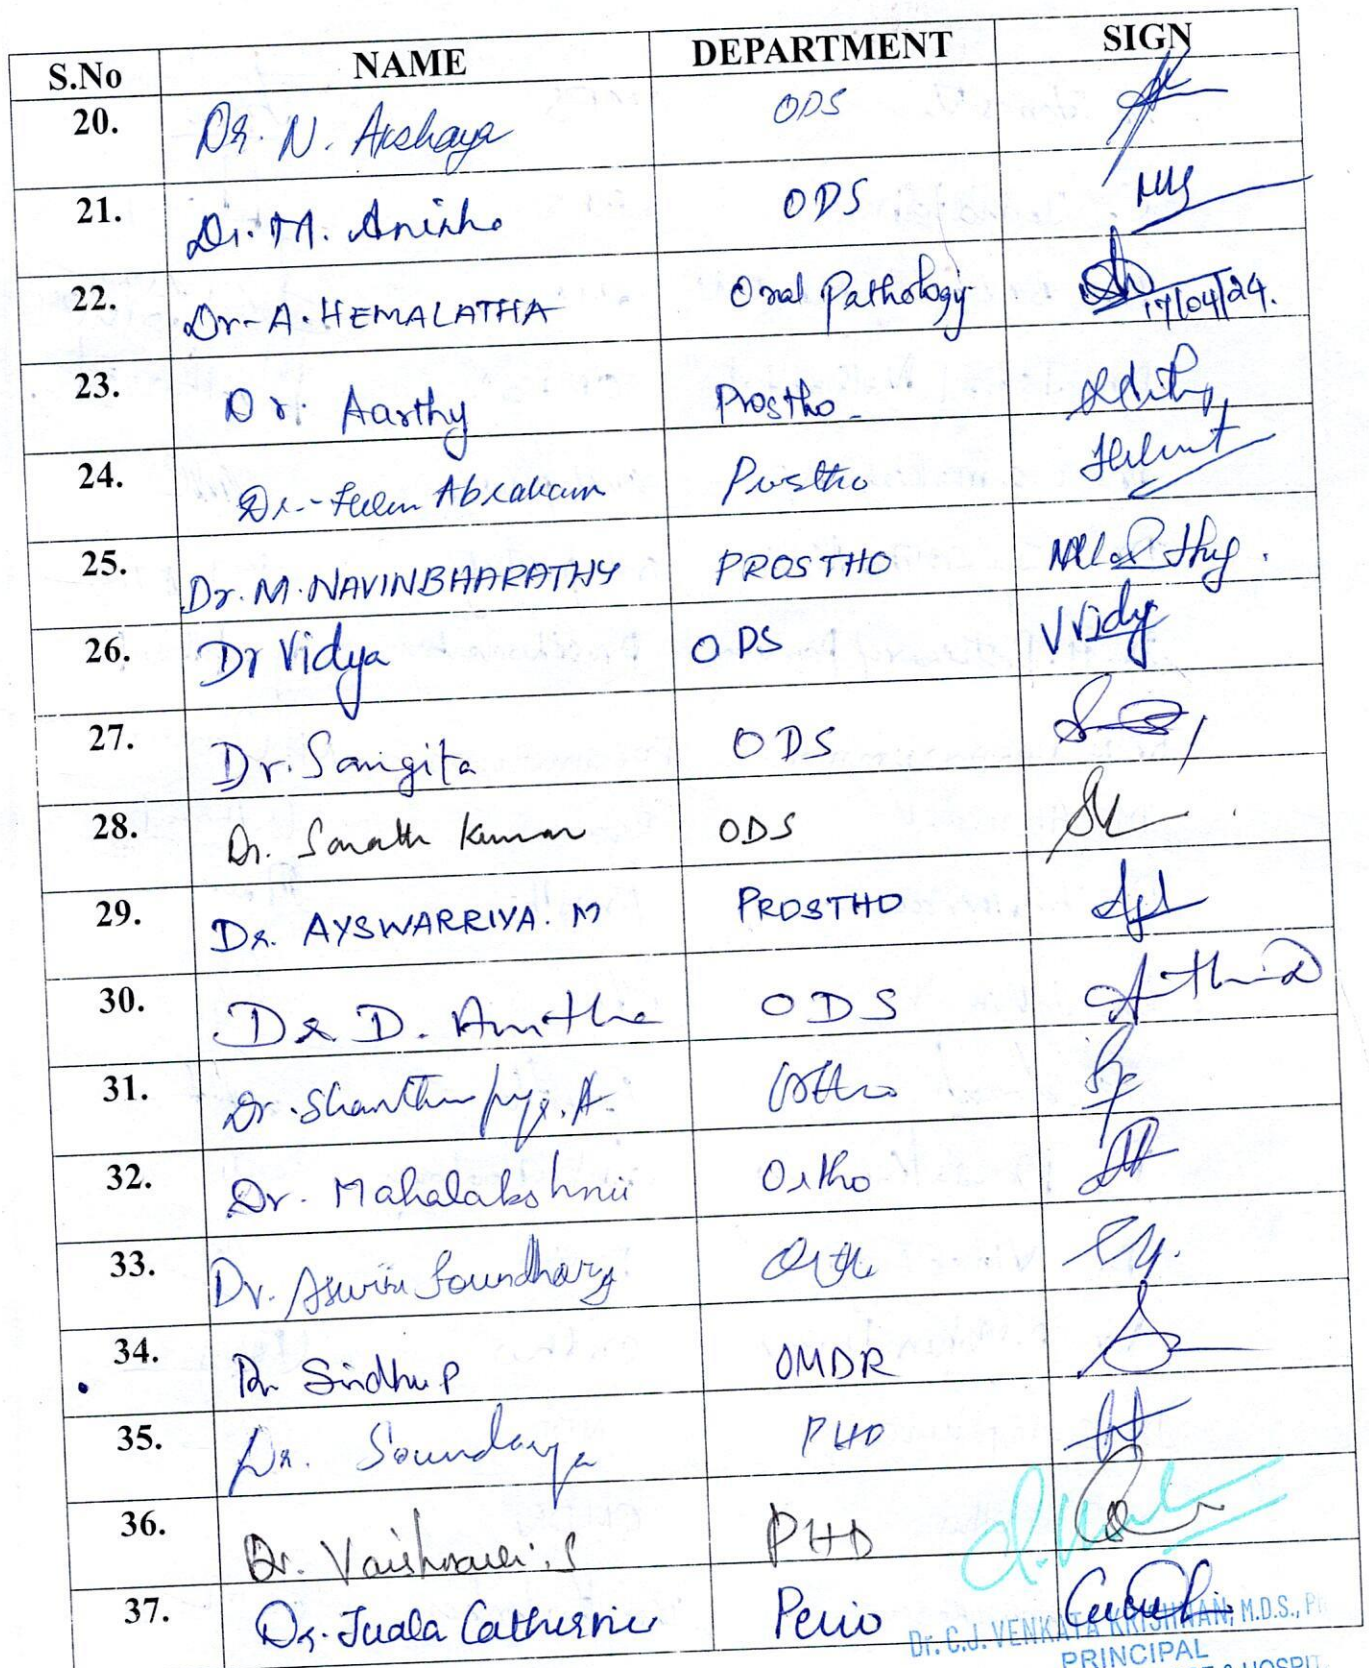 S.No NAME DEPARTMENT SIGN
20. Dr. N. Akshaya ODS
21. Dr. M. Anisha ODS
22. Dr. A. HEMALATHA Oral Pathology 17/04/24.
23. Dr. Aarthy Prostho
24. Dr. Helen Abraham Prostho
25. Dr. M. NAVINBHARATHY PROSTHO
26. Dr Vidya ODS Vidy
27. Dr. Sangita ODS
28. Dr. Sarath Kumar ODS
29. Dr. AYSWARRIYA. M PROSTHO
30. Dr D. Anitha ODS
31. Dr. Shanthi priya. A. Ortho
32. Dr. Mahalakshmi Ortho
33. Dr. Aswini Soundharya Ortho
34. Dr Sindhu P OMDR
35. Dr. Soundarya PHD
36. Dr. Vaishnavi. S PHD
37. Dr. Juala Catherine Perio
Dr. C.J. VENKATA KRISHNAN, M.D.S.,
PRINCIPAL